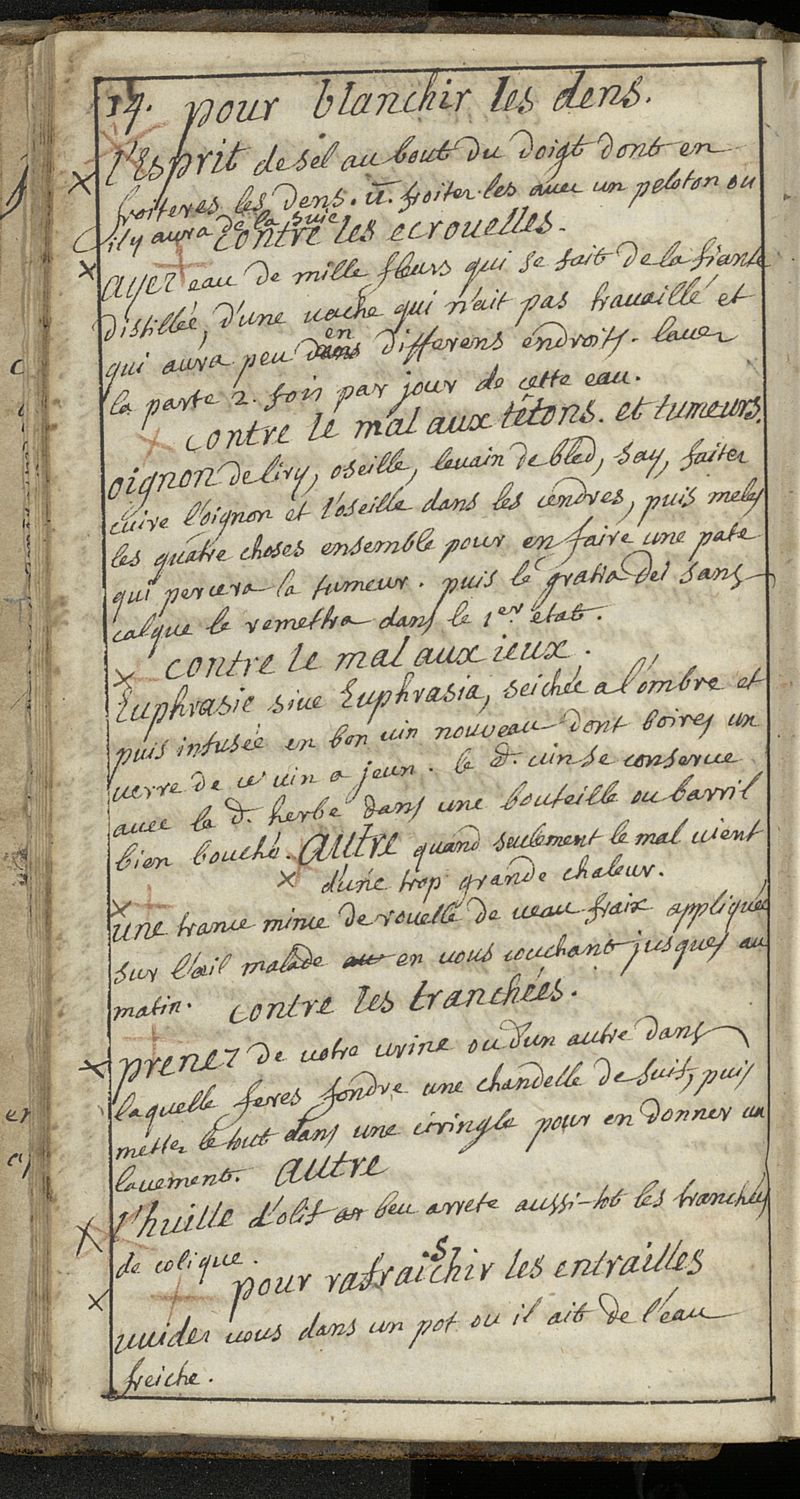 14. pour blanchir les dens.
l'Esprit de sel au bout du doigt dont en
froiteres les dens. ū. froiter les avec un peloton ou
il y aura de la suie
contre les ecrouelles.
ayez eau de mille fleurs qui se fait de la fiante
distillée, d'une vache qui n'ait pas travaillé et
qui aura peu en differens endroits. laver
la parte 2. fois par jour de cette eau.
contre le mal aux tétons. et tumeurs.
oignon de liry, oseille, levain de bled, say, faites
cuire l'oignon et l'oseille dans les cendres, puis meles
les quatre choses ensemble pour en faire une pate
qui percera la tumeur. puis le gratia dei sans
calque le remettra dans le 1er. état.
contre le mal aux ieux.
Euphrasie sive Euphrasia, seichée a l'ombre et
puis infusée en bon vin nouveau dont boires un
verre de ce vin a jeun. le d. vin se conserve
avec la d. herbe dans une bouteille ou barril
bien bouché. autre quand seulement le mal vient
d'une trop grande chaleur.
une trance mince de rouelle de veau fraix appliquée
sur l'œil malade en vous couchant jusques au
matin. contre les tranchées.
prenez de votre urine ou d'un autre dans
laquelle feres fondre une chandelle de suif, puis
mettez le tout dans une ciringle pour en donner un
lavement. autre
l'huille d'olif beu arrete aussi-tot les tranchées
de colique.
pour rafraischir les entrailles
vuider vous dans un pot ou il ait de l'eau
freiche.